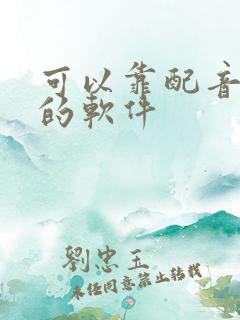 可以靠配音
的軟件
劉忠玉
未經同意禁止轉載